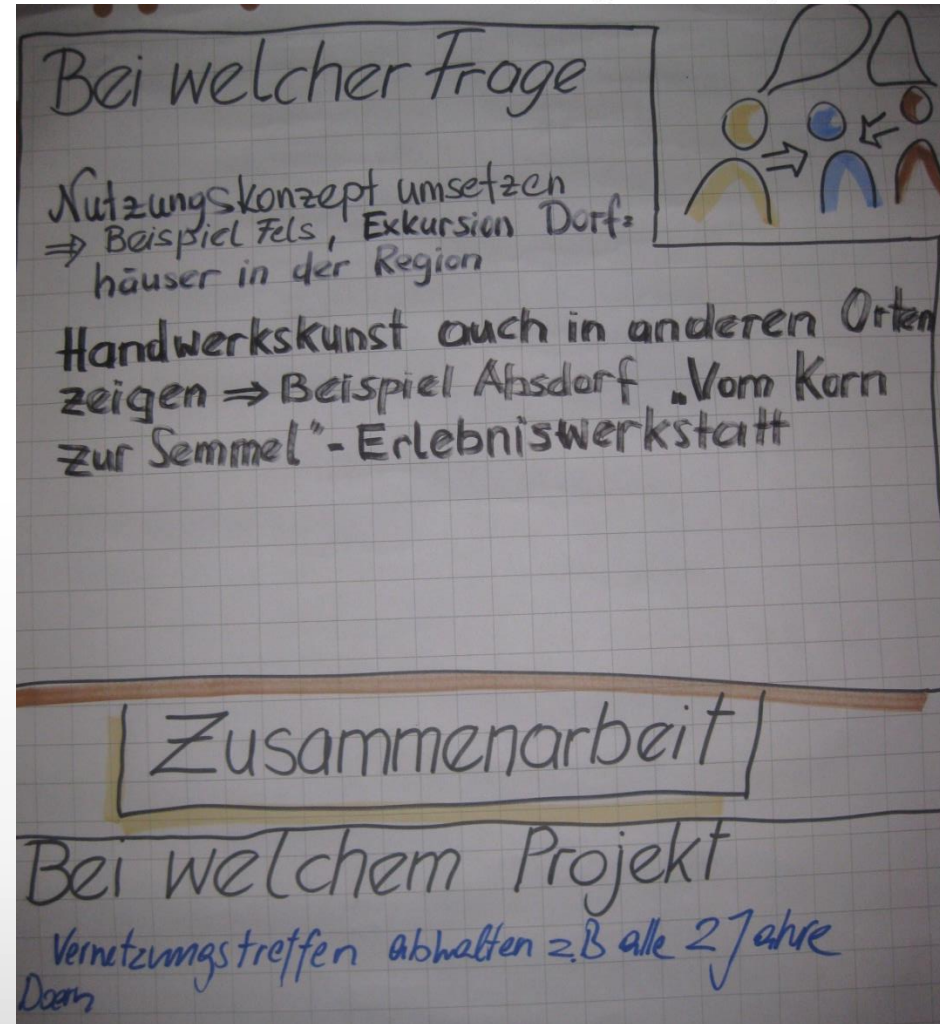 Bei welcher Frage
Nutzungskonzept umsetzen
⇒ Beispiel Fels, Exkursion Dorf=
häuser in der Region
Handwerkskunst auch in anderen Orten
zeigen ⇒ Beispiel Absdorf „Vom Korn
zur Semmel"-Erlebniswerkstatt
Zusammenarbeit
Bei welchem Projekt
Vernetzungstreffen abhalten z.B alle 2 Jahre